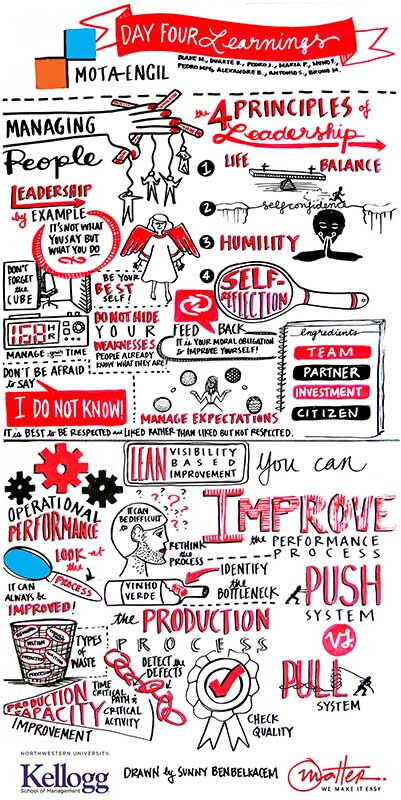 DAY FOUR Learnings
BLAKE M., DUARTE B., PEDRO J., MARIA P., NUNO F.,
PEDRO MM., ALEXANDRE B., ANTONIO S., BRUNO M.
MOTA-ENGIL
MANAGING
People
LEADERSHIP
by EXAMPLE
IT'S NOT WHAT
YOU SAY BUT
WHAT YOU DO
DON'T
FORGET
the
CUBE
BE YOUR
BEST
SELF!
168 HR
MANAGE your TIME
DO NOT HIDE
YOUR
WEAKNESSES
PEOPLE ALREADY
KNOW WHAT THEY ARE!
DON'T BE AFRAID
to SAY
I DO NOT KNOW!
the 4 PRINCIPLES of
Leadership
1 LIFE BALANCE
2 self confidence
3 HUMILITY
4 SELF-
REFLECTION
FEED BACK
IT is YOUR MORAL OBLIGATION
to IMPROVE YOURSELF!
MANAGE EXPECTATIONS
Ingredients
TEAM
PARTNER
INVESTMENT
CITIZEN
IT is BEST to BE RESPECTED and LIKED RATHER THAN LIKED BUT NOT RESPECTED.
LEAN VISIBILITY
BASED
IMPROVEMENT
you can
IMPROVE
the PERFORMANCE
PROCESS
OPERATIONAL
PERFORMANCE
IT CAN
BE DIFFICULT
to
? ? ? ? ?
RETHINK
the
PROCESS
LOOK at
the
PROCESS
IT CAN
ALWAYS be
IMPROVED!
VINHO
VERDE
IDENTIFY
the
BOTTLENECK
PUSH
SYSTEM
VS.
PULL
SYSTEM
the PRODUCTION
PROCESS
TYPES
of
WASTE
DETECT the
DEFECTS
TIME
CRITICAL
PATH &
CRITICAL
ACTIVITY
PRODUCTION
CAPACITY
IMPROVEMENT
CHECK
QUALITY
NORTHWESTERN UNIVERSITY
Kellogg
School of Management
DRAWN by SUNNY BENBELKACEM
matter.
WE MAKE IT EASY